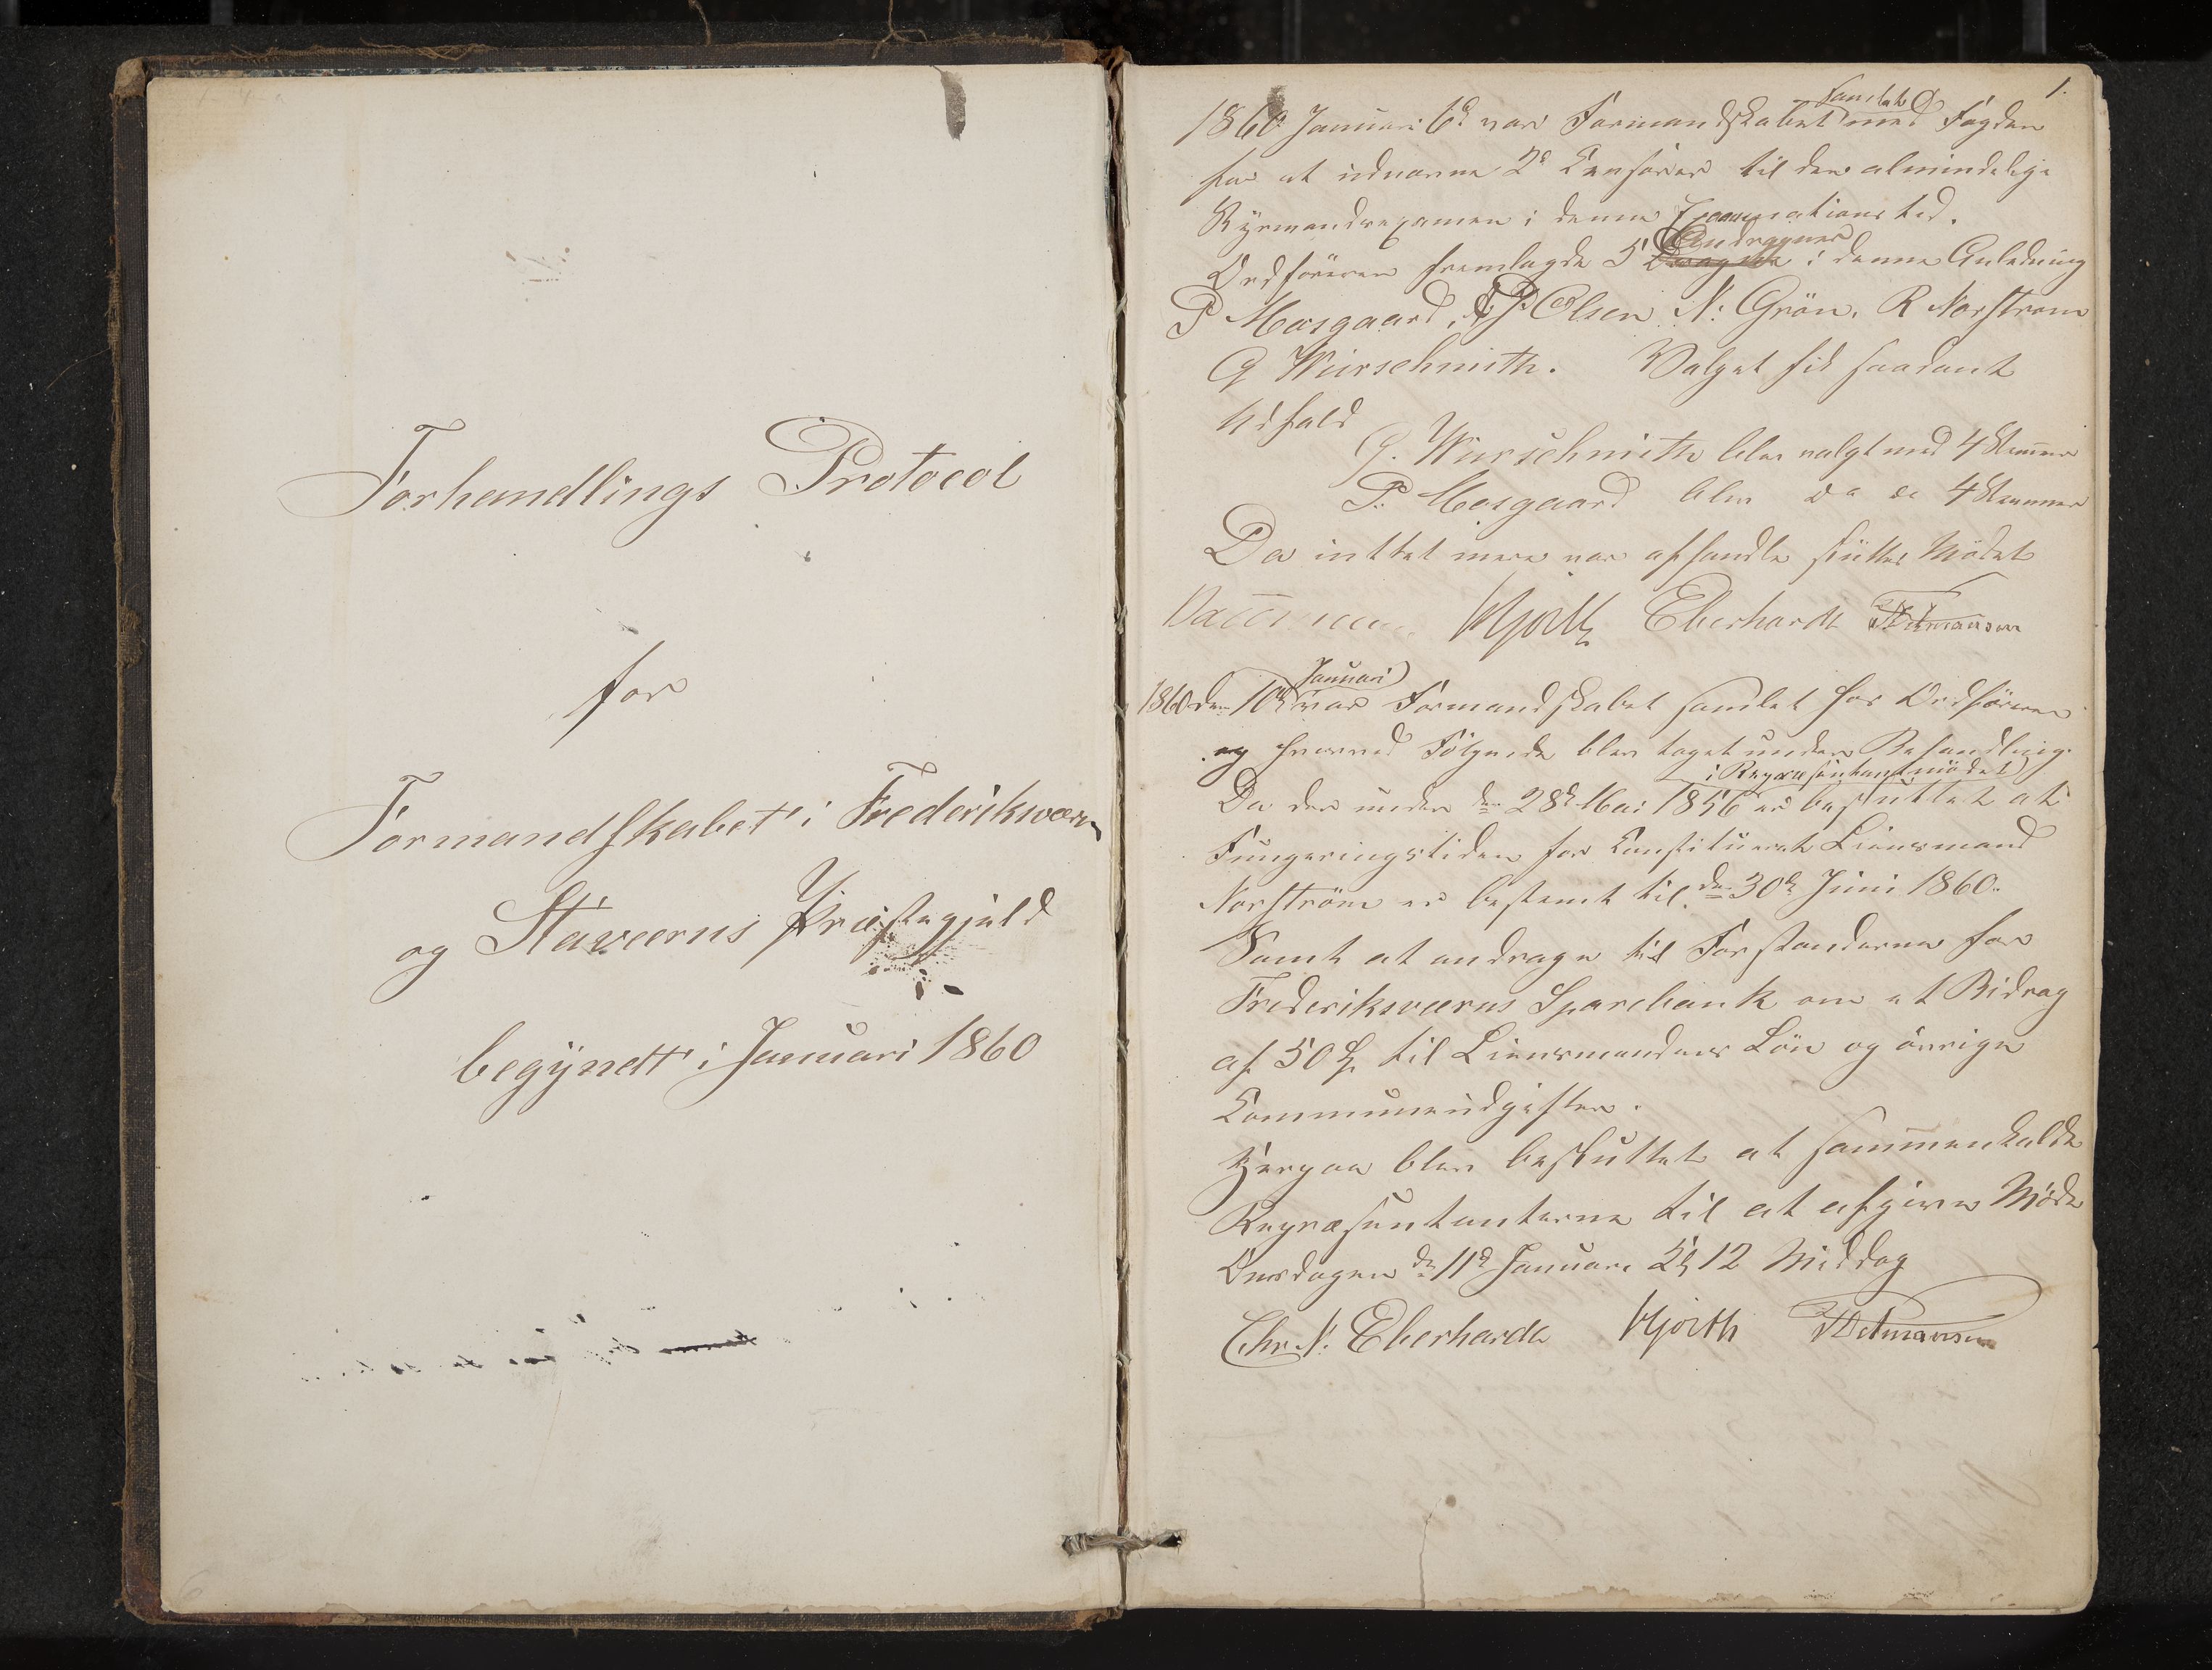 Forhandlings Protocol
for
Formandskabet i Frederiksværn
og Staværns Præstegjeld
begyndt i Januari 1860
1.
samlet
1860 Januari 6d var Formandskabet med Fogden
for at udnævne 2de Censorer til den almindelige
Styrmandsexamen i denne Examinationsted.
Andragner
Ordföreren fremlagde 5 i denne Anledning
P Mosgaard, P. Olsen N: Grön. R Norström
G Würschmith. Valget fik saadant
Udfald
G. Würschmith blev valgt med 4 Stemmer
P. Mosgaard blev do do 4 Stemmer
Da inttet mere var afhandle sluttes Mödet
Hjorth Eberhardt
Januari
1860 den 10d var Formandskabet samlet hos Ordföreren
og hvorved Fölgende blev taget under Behandling.
i Repræsentantmödet
Da der under den 28d Mai 1856 er besluttet at
Fungeringstiden for Constitueret Liensmand
Norström er bestemt til den 30d Juni 1860.
Samt at andrage til Forstanderne for
Frederiksværns Sparebank om et Bidrag
af 50 til Liensmandens Lön og övrige
Communeudgifter.
Herpaa blev besluttet at sammenkalde
Repræsentanterne til at afgive Möde
Onsdagen dn 11d Januari Kl 12 Middag
Chr. N. Eberhardt Hjorth